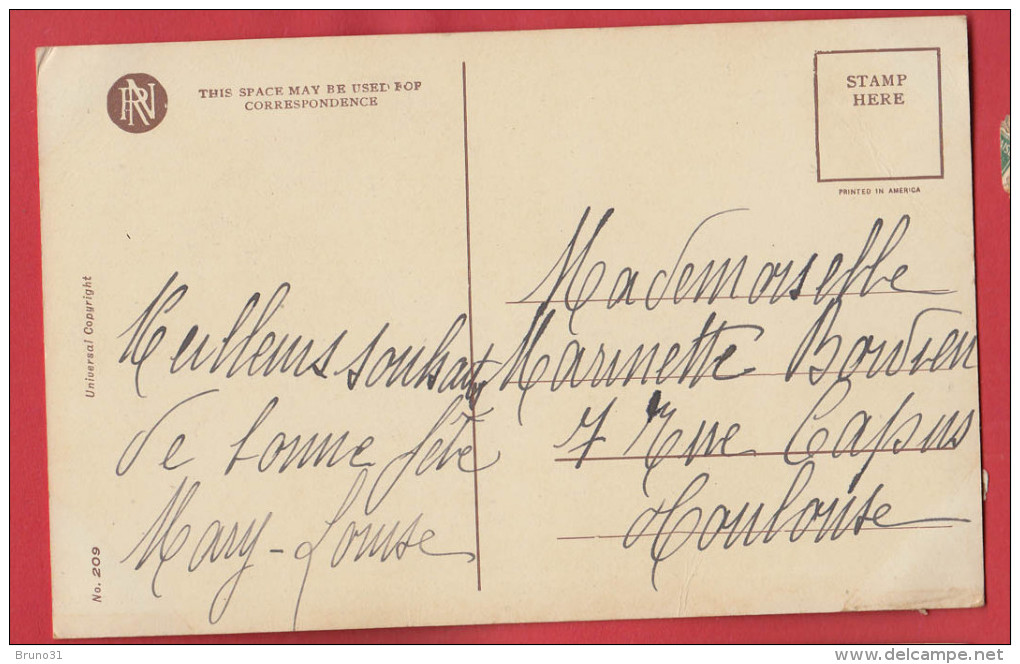 RN
THIS SPACE MAY BE USED FOR
CORRESPONDENCE
STAMP
HERE
PRINTED IN AMERICA
Universal Copyright
No. 209
Meilleurs souhaits
de bonne fête
Mary-Louise
Mademoiselle
Marinette Bordien
7 Rue Capus
Toulouse
Bruno31
www.delcampe.net